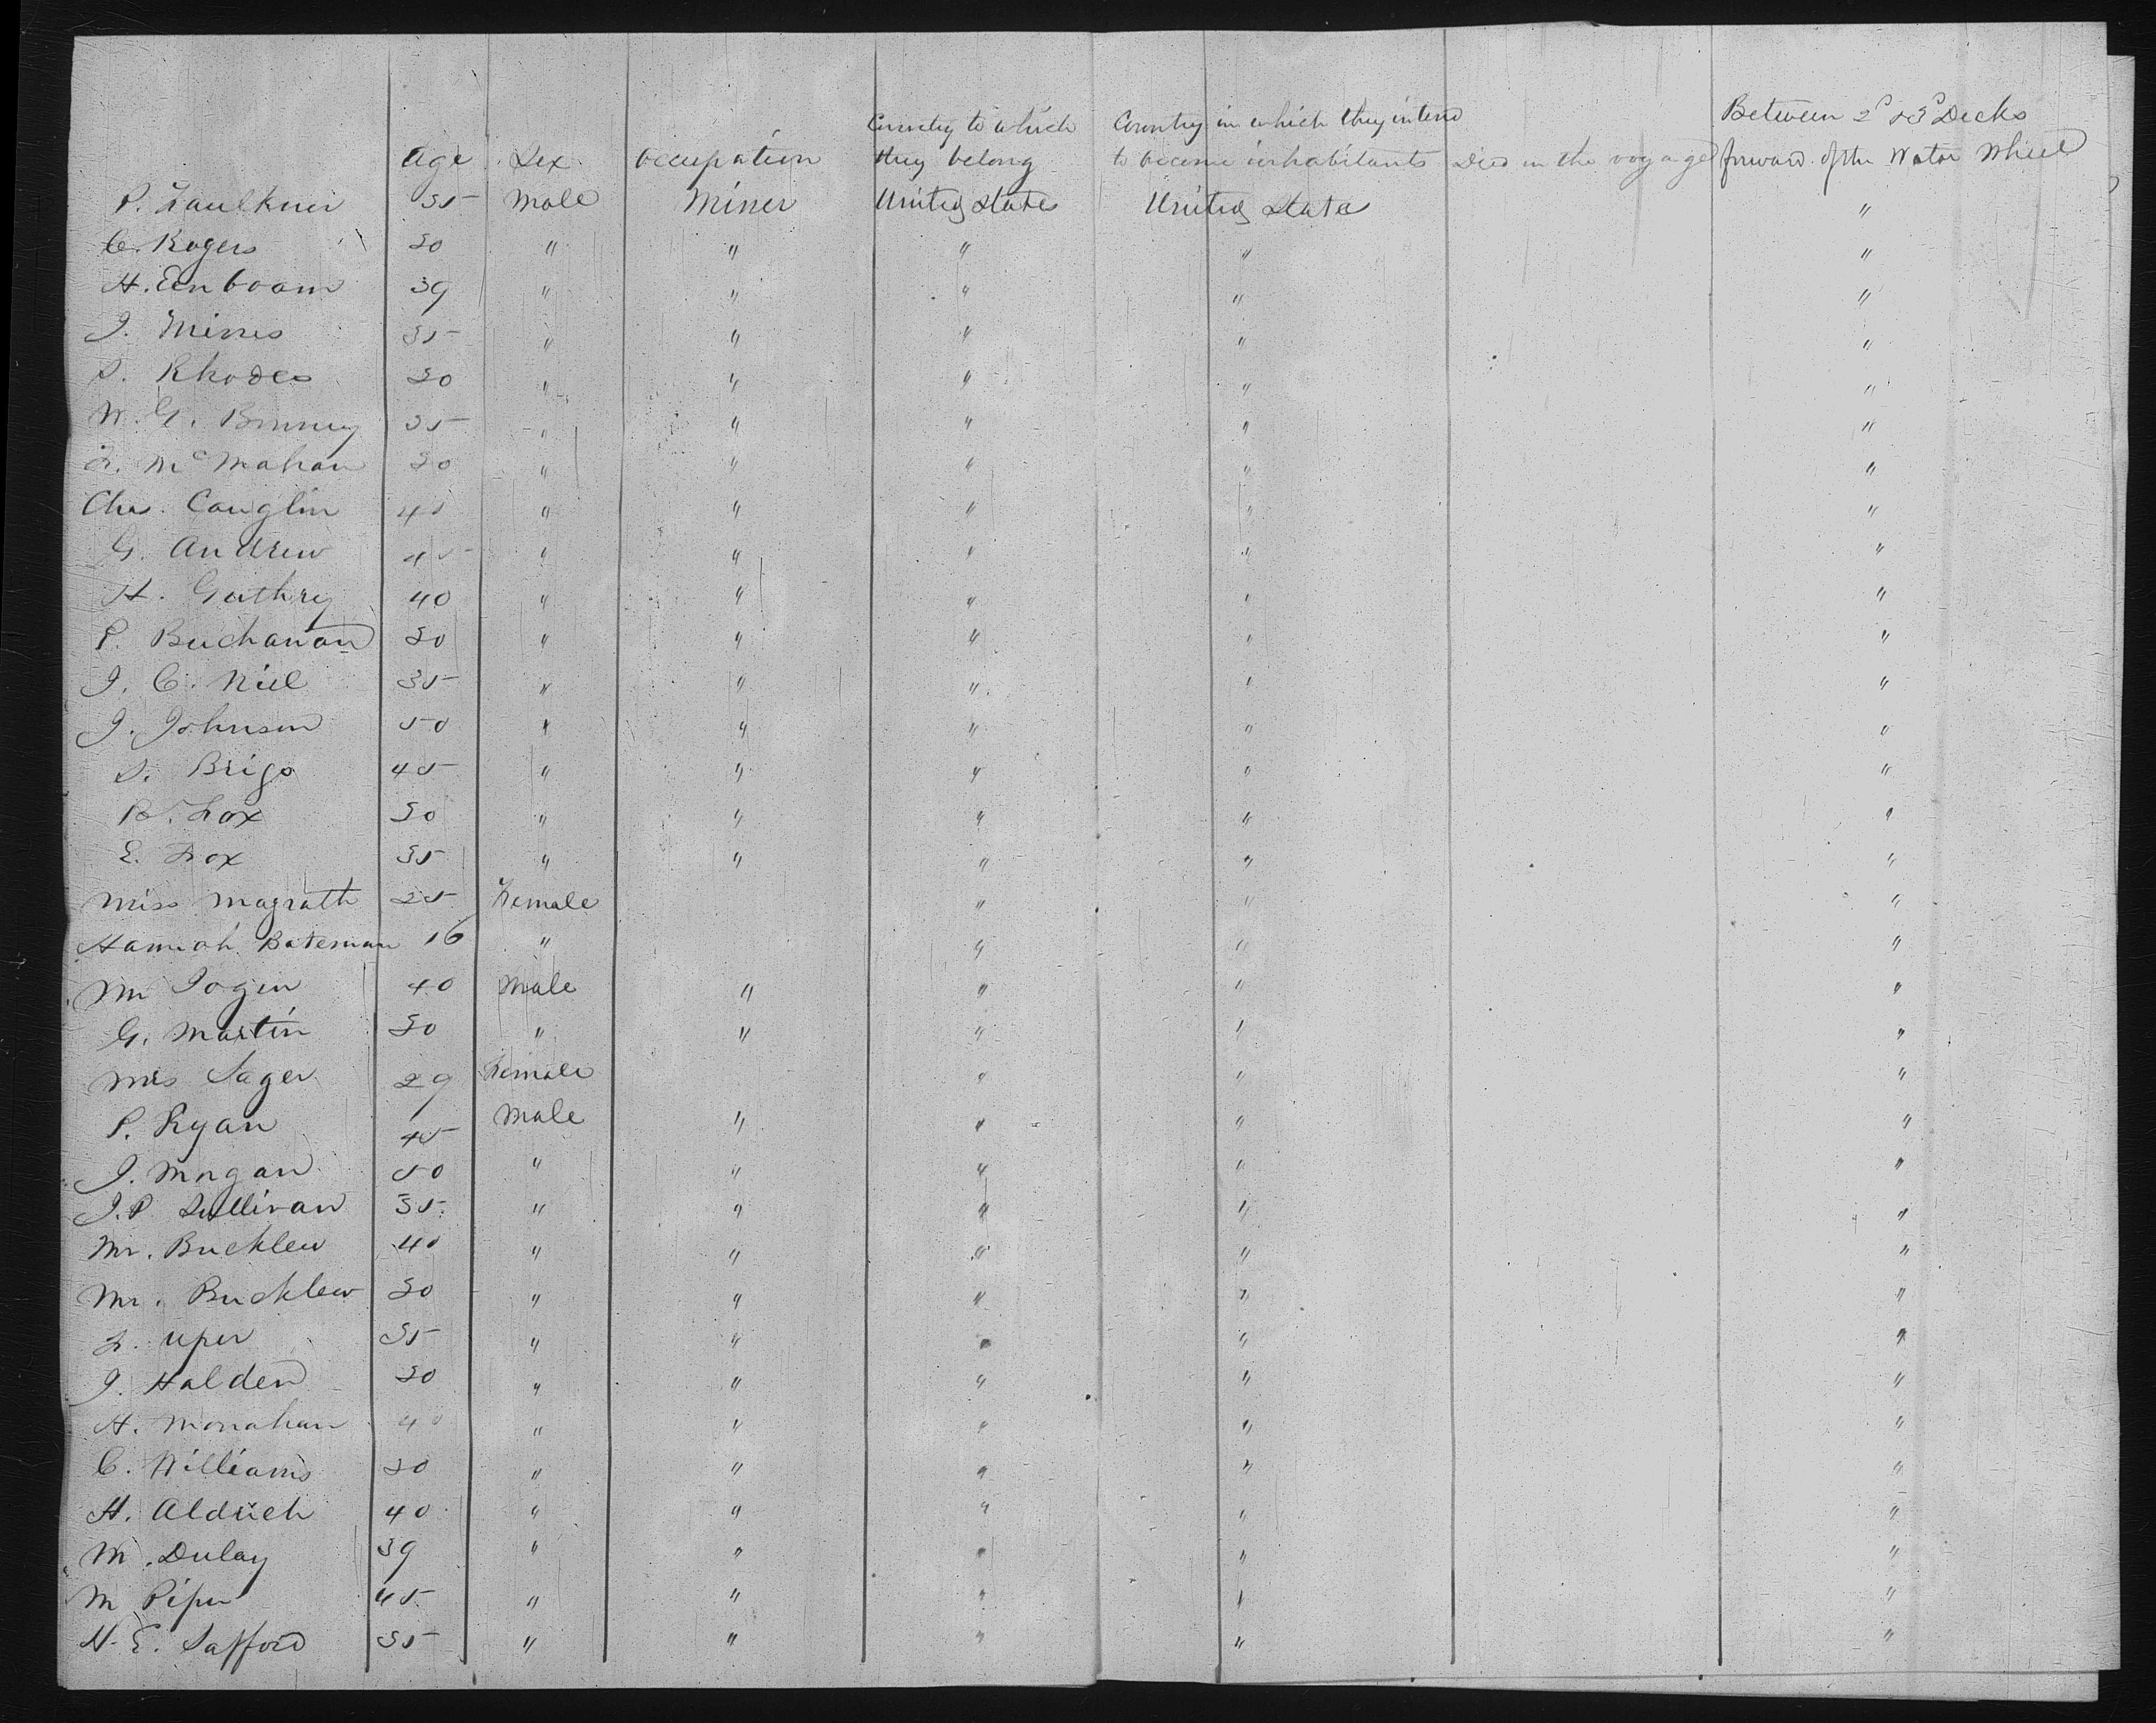 Between 2d & 3d Decks
Age Sex Occupation Country to which they belong Country in which they intend to become inhabitants Died on the voyage forward of the Water Wheel
P. Faulkner 35 Male Miner United States United States "
C. Rogers 30 " " " " "
H. Eenboom 39 " " " " "
J. Minnes 35 " " " " "
S. Rhodes 30 " " " " "
W. G. Binney 35 " " " " "
F. McMahan 30 " " " " "
Chs. Cauglin 40 " " " " "
G. Andrew 45 " " " " "
H. Guthry 40 " " " " "
P. Buchanan 30 " " " " "
J. C. Niel 35 " " " " "
J. Johnson 50 " " " " "
S. Brigs 45 " " " " "
R. Fox 30 " " " " "
E. Fox 35 " " " " "
Miss Magrath 25 Female " " "
Hannah Bateman 16 " " " "
Mr Jogin 40 Male " " " "
G. Martin 30 " " " " "
Mrs Sager 29 Female " " "
P. Ryan 45 Male " " " "
J. Morgan 50 " " " " "
J. P. Sullivan 35 " " " " "
Mr. Bucklew 40 " " " " "
Mr. Bucklew 30 " " " " "
F. Uper 35 " " " " "
J. Halden 30 " " " " "
H. Monahan 40 " " " " "
C. Williams 30 " " " " "
H. Aldrich 40 " " " " "
M. Dulay 39 " " " " "
M Piper 45 " " " " "
H. E. Safford 35 " " " " "